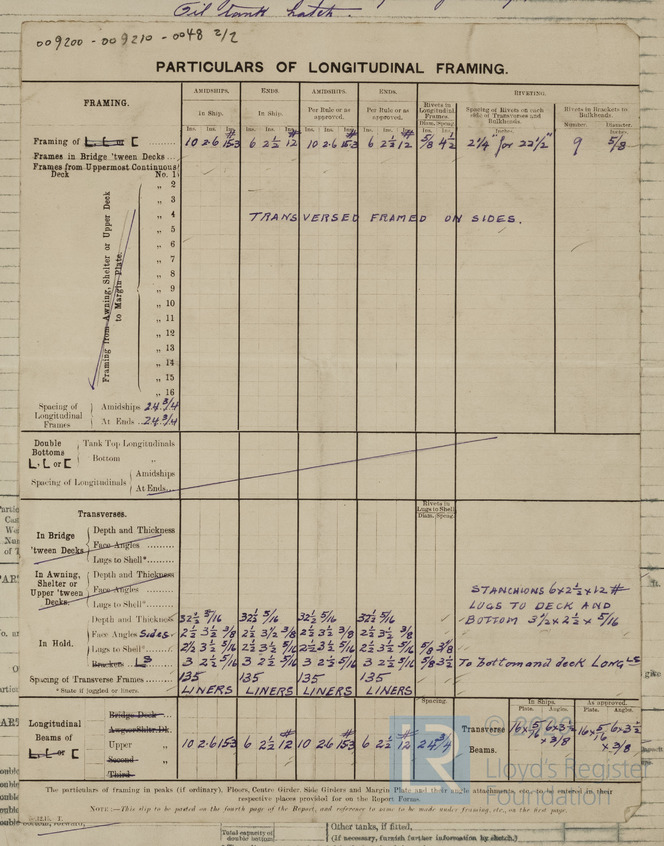 Oil tank hatch.
009200 - 009210 - 0048 2/2
PARTICULARS OF LONGITUDINAL FRAMING.
FRAMING.
AMIDSHIPS. ENDS. AMIDSHIPS. ENDS. RIVETING.
In Ship. In Ship. Per Rule or as approved. Per Rule or as approved. Rivets in Longitudinal Frames. Spacing of Rivets on each side of Transverses and Bulkheads. Rivets in Brackets to Bulkheads.
Ins. Ins. Ins. Ins. Ins. Ins. Ins. Ins. Ins. Ins. Diam. Spcng. Inches. Number. Diameter.
Framing of L, L or [ [ ........ 10 2·6 15·3 6 2½ 12 10 2·6 15·3 6 2½ 12 5/8 4½ 2¼" for 22½" 9 5/8
Frames in Bridge 'tween Decks ...
Frames from Uppermost Continuous
Deck No. 1
„ 2
„ 3
„ 4 TRANSVERSED FRAMED ON SIDES.
„ 5
„ 6
„ 7
„ 8
„ 9
„ 10
„ 11
„ 12
„ 13
„ 14
„ 15
„ 16
Framing from Awning, Shelter or Upper Deck to Margin Plate.
Spacing of Longitudinal Frames
Amidships 24 3/4
At Ends ... 24 3/4
Double Bottoms L, L or [
Tank Top Longitudinals
Bottom „
Spacing of Longitudinals
Amidships
At Ends.....
Rivets in Lugs to Shell.
Diam. Spcng.
Transverses.
In Bridge 'tween Decks
Depth and Thickness
Face Angles .........
Lugs to Shell* .......
In Awning, Shelter or Upper 'tween Decks.
Depth and Thickness
Face Angles .........
Lugs to Shell* .......
STANCHIONS 6 x 2½ x 12 #
LUGS TO DECK AND
BOTTOM 3½ x 2½ x 5/16
In Hold.
Depth and Thickness 32½ 5/16 32½ 5/16 32½ 5/16 32½ 5/16
Face Angles Sides 2½ 3½ 3/8 2½ 3½ 3/8 2½ 3½ 3/8 2½ 3½ 3/8
Lugs to Shell* 2½ 3½ 5/16 2½ 3½ 5/16 2½ 3½ 5/16 2½ 3½ 5/16
Brackets LS 3 2½ 5/16 3 2½ 5/16 3 2½ 5/16 3 2½ 5/16 5/8 3½ To bottom and deck LONGLS
Spacing of Transverse Frames 135 135 135 135
* State if joggled or liners. LINERS LINERS LINERS LINERS
Spacing.
Longitudinal Beams of L, L or [
Bridge Deck
Upper „ 10 2·6 15·3 6 2½ 12 10 2·6 15·3 6 2½ 12 24 3/4
Second „
Third „
Transverse Beams.
In Ships. As approved.
Plate. Angles. Plate. Angles.
16 x 5/16 6 x 3½ x 3/8 16 x 5/16 6 x 3½ x 3/8
The particulars of framing in peaks (if ordinary), Floors, Centre Girder, Side Girders and Margin Plate and their angle attachments, etc., to be entered in their
respective places provided for on the Report Forms.
NOTE:—This slip to be posted on the fourth page of the Report, and reference to same to be made under framing, etc., on the first page.
Lloyd's Register
Foundation
Total capacity of double bottom
Other tanks, if fitted,
(If necessary, furnish further information by sketch.)